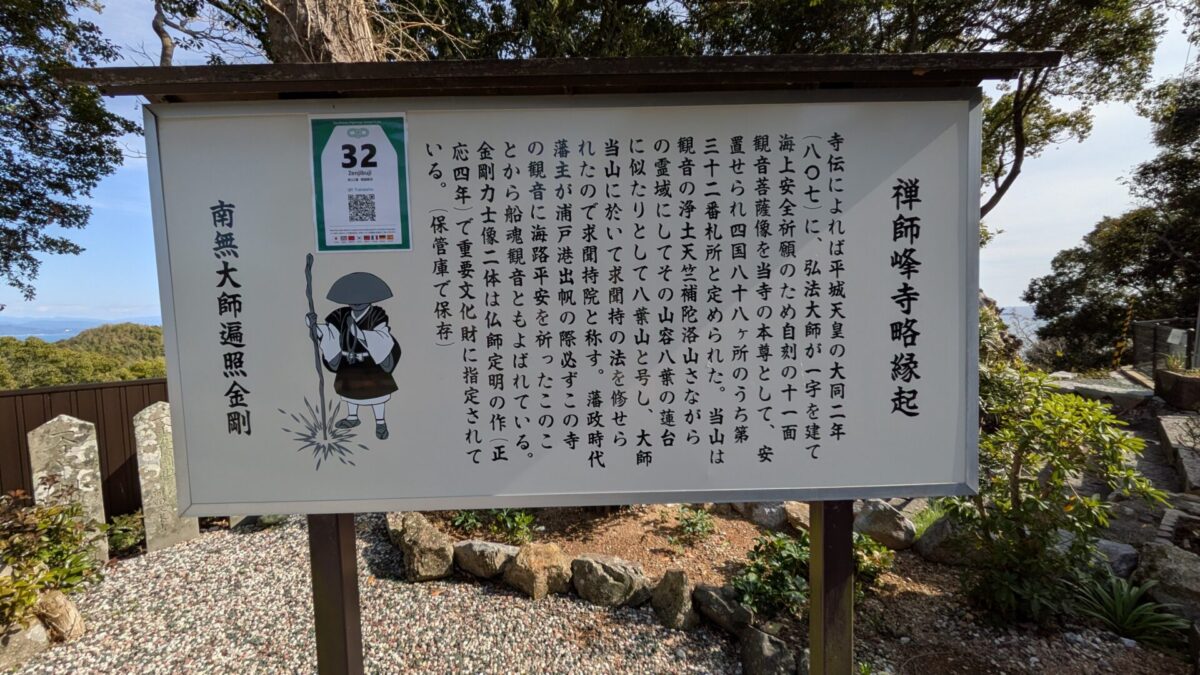 禅師峰寺略縁起
寺伝によれば平城天皇の大同二年
（八〇七）に、弘法大師が一宇を建て
海上安全祈願のため自刻の十一面
観音菩薩像を当寺の本尊として、安
置せられ四国八十八ヶ所のうち第
三十二番札所と定められた。当山は
観音の浄土天竺補陀洛山さながら
の霊域にしてその山容八葉の蓮台
に似たりとして八葉山と号し、大師
当山に於いて求聞持の法を修せら
れたので求聞持院と称す。　藩政時代
藩主が浦戸港出帆の際必ずこの寺
の観音に海路平安を祈ったこのこ
とから船魂観音ともよばれている。
金剛力士像二体は仏師定明の作（正
応四年）で重要文化財に指定されて
いる。（保管庫で保存）
32
Zenjibuji
南無大師遍照金剛